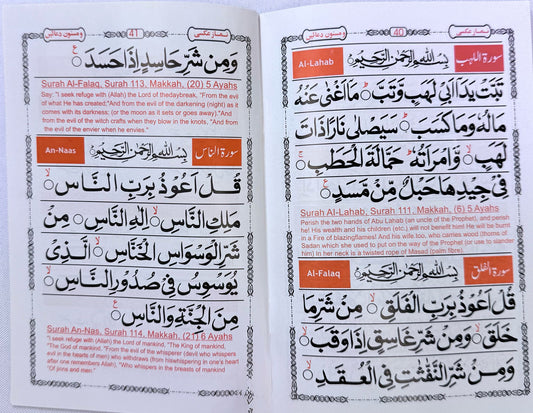 نماز عکسی 40 و مسنون دعائیں
سورة اللهب بِسْمِ اللهِ الرَّحْمٰنِ الرَّحِيْمِ Al-Lahab
تَبَّتْ يَدَآ اَبِيْ لَهَبٍ وَّتَبَّ ۝ مَآ اَغْنٰى عَنْهُ
مَالُهٗ وَمَا كَسَبَ ۝ سَيَصْلٰى نَارًا ذَاتَ
لَهَبٍ ۝ وَّامْرَاَتُهٗ ۭ حَمَّالَةَ الْحَطَبِ ۝
فِيْ جِيْدِهَا حَبْلٌ مِّنْ مَّسَدٍ ۝
Surah Al-Lahab, Surah 111, Makkah, (6) 5 Ayahs
Perish the two hands of Abu Lahab (an uncle of the Prophet), and perish
he! His wealth and his children (etc.) will not benefit him! He will be burnt
in a Fire of blazingflames! And his wife too, who carries wood (thorns of
Sadan which she used to put on the way of the Prophet (or use to slander
him) In her neck is a twisted rope of Masad (palm fibre)
سورة الفلق بِسْمِ اللهِ الرَّحْمٰنِ الرَّحِيْمِ Al-Falaq
قُلْ اَعُوْذُ بِرَبِّ الْفَلَقِ ۝ مِنْ شَرِّ مَا
خَلَقَ ۝ وَمِنْ شَرِّ غَاسِقٍ اِذَا وَقَبَ ۝
وَمِنْ شَرِّ النَّفّٰثٰتِ فِي الْعُقَدِ ۝
نماز عکسی 41 و مسنون دعائیں
وَمِنْ شَرِّ حَاسِدٍ اِذَا حَسَدَ ۝
Surah Al-Falaq, Surah 113, Makkah, (20) 5 Ayahs
Say: "I seek refuge with (Allah) the Lord of thedaybreak, "From the evil
of what He has created;"And from the evil of the darkening (night) as it
comes with its darkness; (or the moon as it sets or goes away)."And
from the evil of the witch crafts when they blow in the knots, "And from
the evil of the envier when he envies."
سورة الناس بِسْمِ اللهِ الرَّحْمٰنِ الرَّحِيْمِ An-Naas
قُلْ اَعُوْذُ بِرَبِّ النَّاسِ ۝
مَلِكِ النَّاسِ ۝ اِلٰهِ النَّاسِ ۝ مِنْ
شَرِّ الْوَسْوَاسِ الْخَنَّاسِ ۝ الَّذِيْ
يُوَسْوِسُ فِيْ صُدُوْرِ النَّاسِ ۝
مِنَ الْجِنَّةِ وَالنَّاسِ ۝
Surah An-Nas, Surah 114, Makkah, (21) 6 Ayahs
"I seek refuge with (Allah) the Lord of mankind, "The King of mankind,
"The God of mankind, "From the evil of the whisperer (devil who whispers
evil in the hearts of men) who withdraws (from hiswhispering in one's heart
after one remembers Allah), "Who whispers in the breasts of mankind
"Of jinns and men."